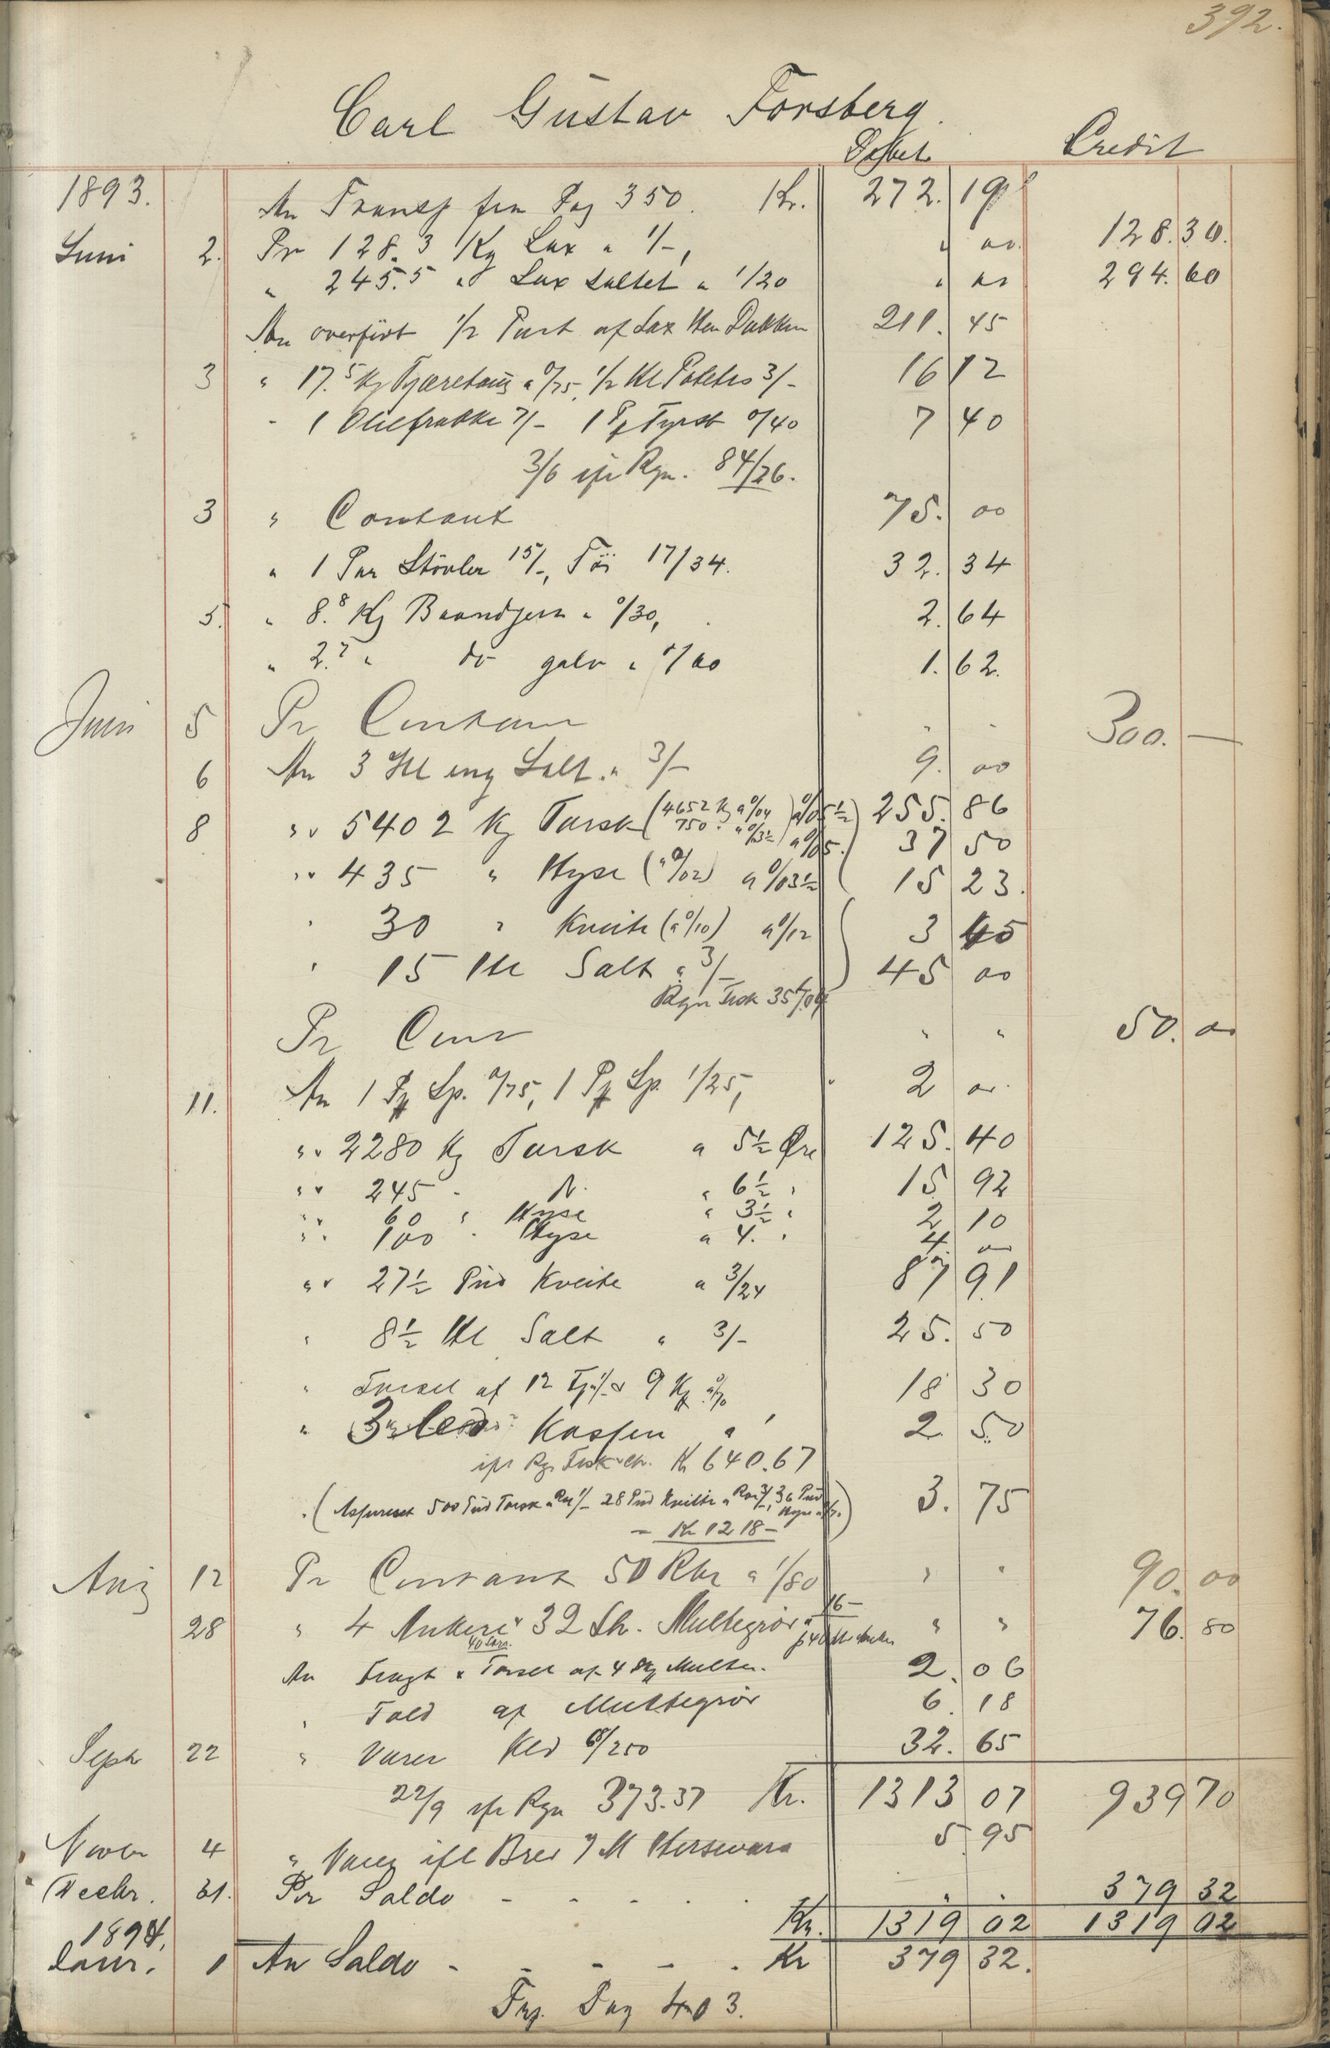 392.
Carl Gustav Forsberg.
Debet Credit
1893. An Transp fra Pag 350. Kr. 272. 19
Juni 2. Pr 128.3 Kg Lax a 1/-, " " 128. 30.
" 245.5 " Lax saltet a 1/20 " " 294. 60
An overført 1/2 Part af Lax 211. 45
3 " 17.5 Kg Tjæretaug a 0/75, 1/2 Hl Potetes 3/- 16 12
" 1 Oliefrakke 7/- 1 0/40 7 40
3/6 ifl Rgn. 84/26.
3 " Contant 75. 00
" 1 Par Støvler 15/-, Töi 17/34. 32. 34
5. " 8.8 Kg Baandjern a 0/30, 2. 64
" 2.7 " do galv a 0/60 1. 62.
Juni 5 Pr Contant " " 300. —
6 An 3 Hl eng Salt a 3/- 9. 00
8 " 5402 Kg Torsk (4652 Kg a 0/04 a 0/05 1/2 255. 86
750 " a 0/03 1/2) a 0/05. 37 50
" 435 " Hyse (a 0/02) a 0/03 1/2 15 23.
" 30 " Kveite (a 0/10) a 0/12 3
" 15 Hl Salt a 3/- 45 00
Rgn Fisk
Pr Cont " " 50. 00
11. An 1 Pk Sp. 0/75, 1 Pk Sp. 1/25, 2 00
" 2280 Kg Torsk a 5 1/2 Øre 125. 40
" 245 " " a 6 1/2 " 15 92
" 60 " Hyse a 3 1/2 " 2 10
" 100 " Hyse a 4. " 4. 00
" 27 1/2 Pud Kveite a 3/24 87 91
" 8 1/2 Hl Salt a 3/- 25. 50
" af 12 9 18 30
" 3 Kassen a 2 50
ifl Rgn Fisk Kr 640.67
" (Assureret 500 Pud Torsk a Rbl 1/- 28 Pud Kveite a Rbl 3/-, 36 Pud Hyse) 3. 75
- Kr 1218 -
Aug 12 Pr Contant 50 Rbr a 1/80 " " 90. 00
28 " 4 Ankere 32 Multegrør a 16- " " 76. 80
An Fragt & af 4 Multer. 2. 06
" Told af Multegrør 6. 18
Sept 22 " Varer 32. 65
22/9 ifl Rgn 373.37 Kr. 1313 07 939 70
Novbr 4 " Varer ifl Brev 5 95
Decbr. 31. Pr Saldo - - - - - " " 379 32
Kr. 1319 02 1319 02
1894.
Janr. 1 An Saldo - - - - - Kr 379 32.
Trp. Pag 403.